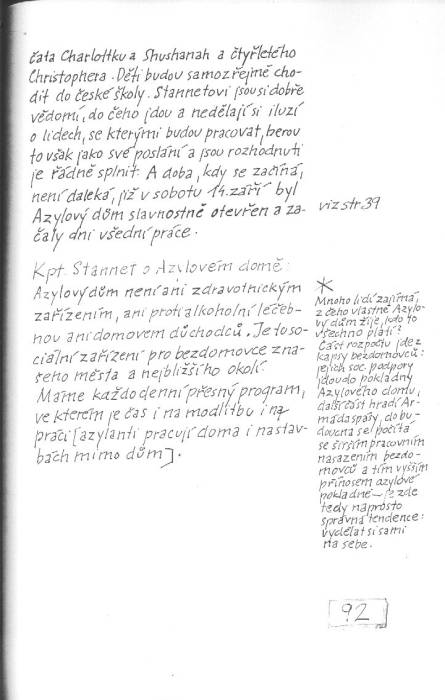 čata Charlottku a Shushanah a čtyřletého
Christophera. Děti budou samozřejmě cho-
dit do české školy. Stannetovi jsou si dobře
vědomi, do čeho jdou a nedělají si iluzí
o lidech, se kterými budou pracovat, berou
to však jako své poslání a jsou rozhodnuti
je řádně splnit. A doba, kdy se začíná,
není daleká, již v sobotu 14. září byl
Azylový dům slavnostně otevřen a za-
čaly dni všední práce.
viz str. 39
Kpt. Stannet o Azylovém domě:
Azylový dům není ani zdravotnickým
zařízením, ani protialkoholní léčeb-
nou ani domovem důchodců. Je to so-
ciální zařízení pro bezdomovce zna-
šeho města a nejbližšího okolí.
Máme každodenní přesný program,
ve kterém je čas i na modlitbu i na
práci [azylanti pracují doma i na stav-
bách mimo dům].
*
Mnoho lidí zajímá,
z čeho vlastně Azylo-
vý dům žije, kdo to
všechno platí?
Část rozpočtu jde z
kapsy bezdomovců:
jejich soc. podpory
jdou do pokladny
Azylového domu,
další část hradí Ar-
máda spásy, do bu-
doucna se počítá
se širším pracovním
nasazením bezdo-
movců a tím vyšším
přínosem azylové
pokladně – je zde
tedy naprosto
správná tendence:
vydělat si sami
na sebe.
92